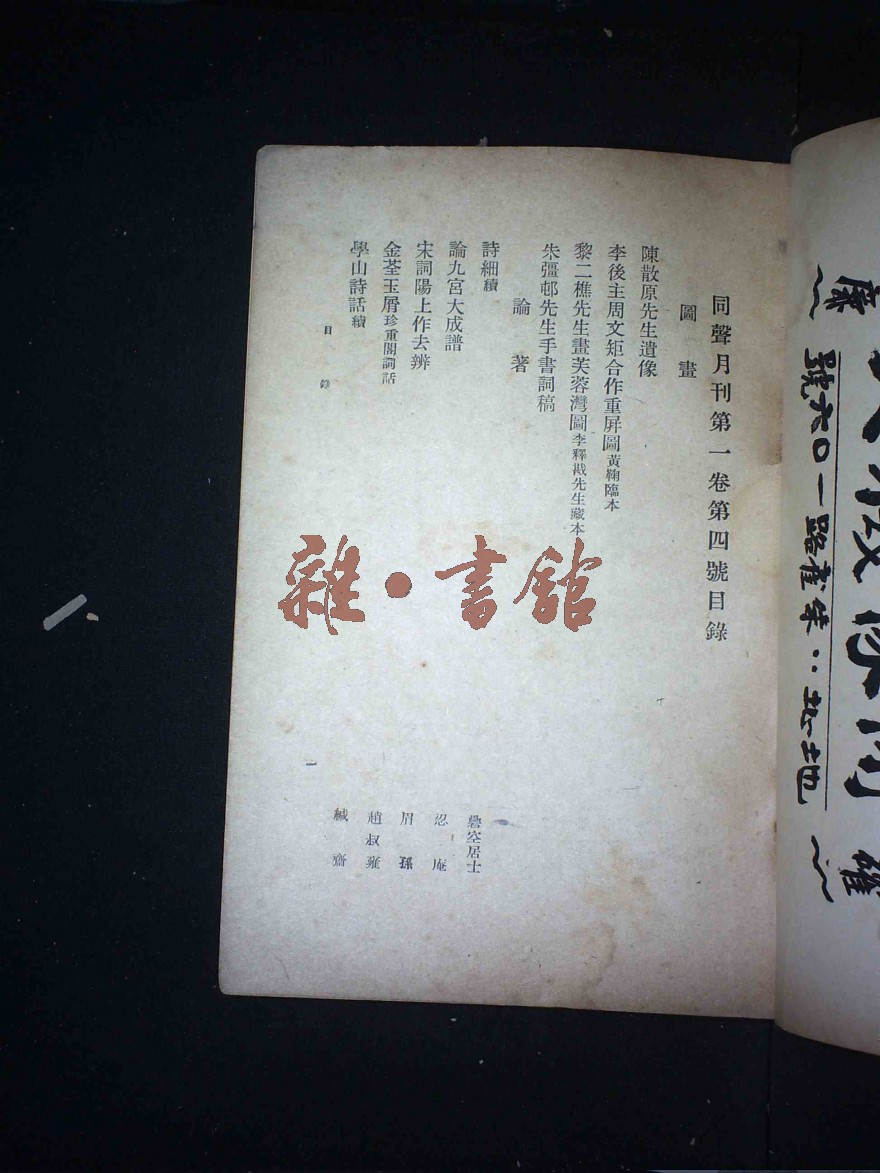 同聲月刊第一卷第四號目錄
圖畫
陳散原先生遺像
李後主周文矩合作重屏圖黃鞠臨本
黎二樵先生畫芙蓉灣圖李釋戡先生藏本
朱彊邨先生手書詞稿
論著
詩細續 礐空居士
論九宮大成譜 忍庵
宋詞陽上作去辨 眉孫
金荃玉屑珍重閣詞話 趙叔雍
學山詩話續 緘齋
目錄
一
雜·書館
地址：朱雀路一〇六號